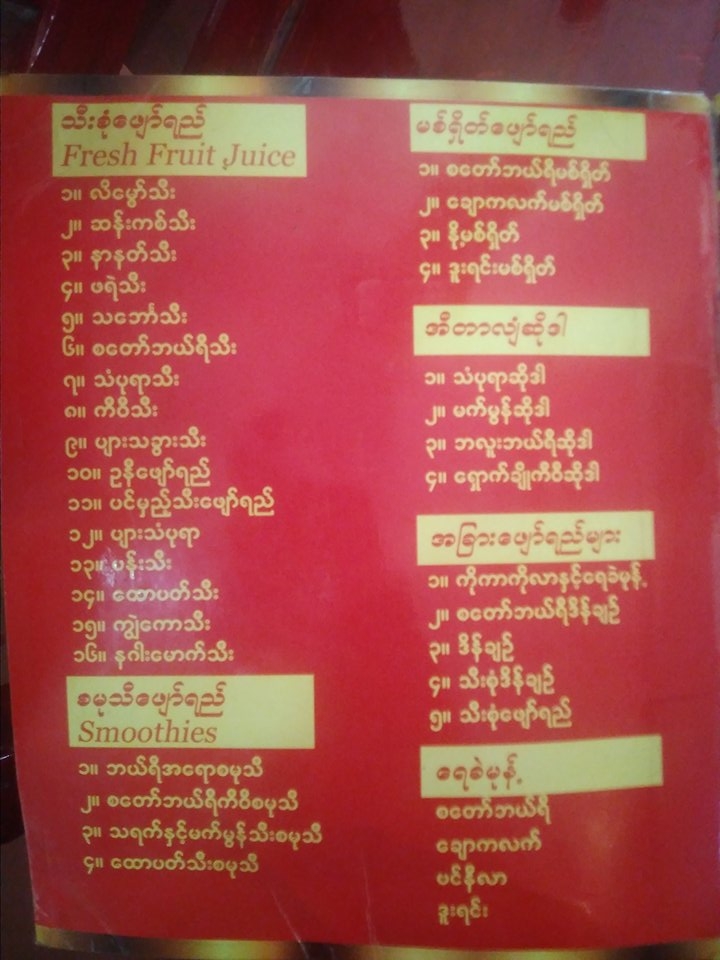 သီးစုံဖျော်ရည်
Fresh Fruit Juice
၁။ လိမ္မော်သီး
၂။ ဆန်းကစ်သီး
၃။ နာနတ်သီး
၄။ ဖရဲသီး
၅။ သင်္ဘောသီး
၆။ စတော်ဘယ်ရီသီး
၇။ သံပုရာသီး
၈။ ကီဝီသီး
၉။ ပျားသခွားသီး
၁၀။ ဥနီဖျော်ရည်
၁၁။ ပင်မှည့်သီးဖျော်ရည်
၁၂။ ပျားသံပုရာ
၁၃။ ပန်းသီး
၁၄။ ထောပတ်သီး
၁၅။ ကျွဲကောသီး
၁၆။ နဂါးမောက်သီး
စမုသီဖျော်ရည်
Smoothies
၁။ ဘယ်ရီအရောစမုသီ
၂။ စတော်ဘယ်ရီကီဝီစမုသီ
၃။ သရက်နှင့်မက်မွန်သီးစမုသီ
၄။ ထောပတ်သီးစမုသီ
မစ်ရှိတ်ဖျော်ရည်
၁။ စတော်ဘယ်ရီမစ်ရှိတ်
၂။ ချောကလက်မစ်ရှိတ်
၃။ နို့မစ်ရှိတ်
၄။ ဒူးရင်းမစ်ရှိတ်
အီတာလျံဆိုဒါ
၁။ သံပုရာဆိုဒါ
၂။ မက်မွန်ဆိုဒါ
၃။ ဘလူးဘယ်ရီဆိုဒါ
၄။ ရှောက်ချိုကီဝီဆိုဒါ
အခြားဖျော်ရည်များ
၁။ ကိုကာကိုလာနှင့်ရေခဲမုန့်
၂။ စတော်ဘယ်ရီဒိန်ချဉ်
၃။ ဒိန်ချဉ်
၄။ သီးစုံဒိန်ချဉ်
၅။ သီးစုံဖျော်ရည်
ရေခဲမုန့်
စတော်ဘယ်ရီ
ချောကလက်
ဗင်နီလာ
ဒူးရင်း